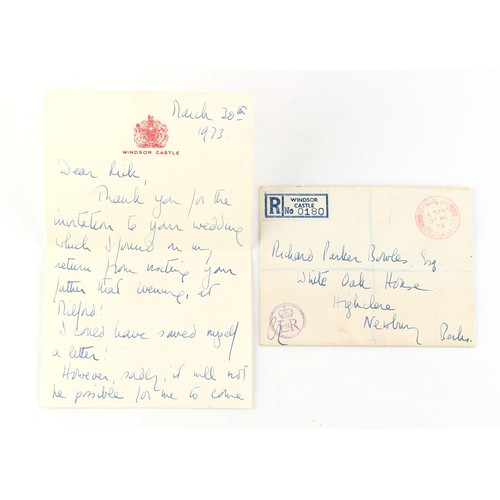 March 30th
1973.
WINDSOR CASTLE
Dear Rick,
Thank you for the
invitation to your wedding
which I found on my
return from visiting your
father that evening, at
Milford!
I could have saved myself
a letter!
However, sadly, it will not
be possible for me to come
R
WINDSOR
CASTLE
No 0180
Richard Parker Bowles, Esq.
White Oak House
Highclere
Newbury
Berks.
EIIR